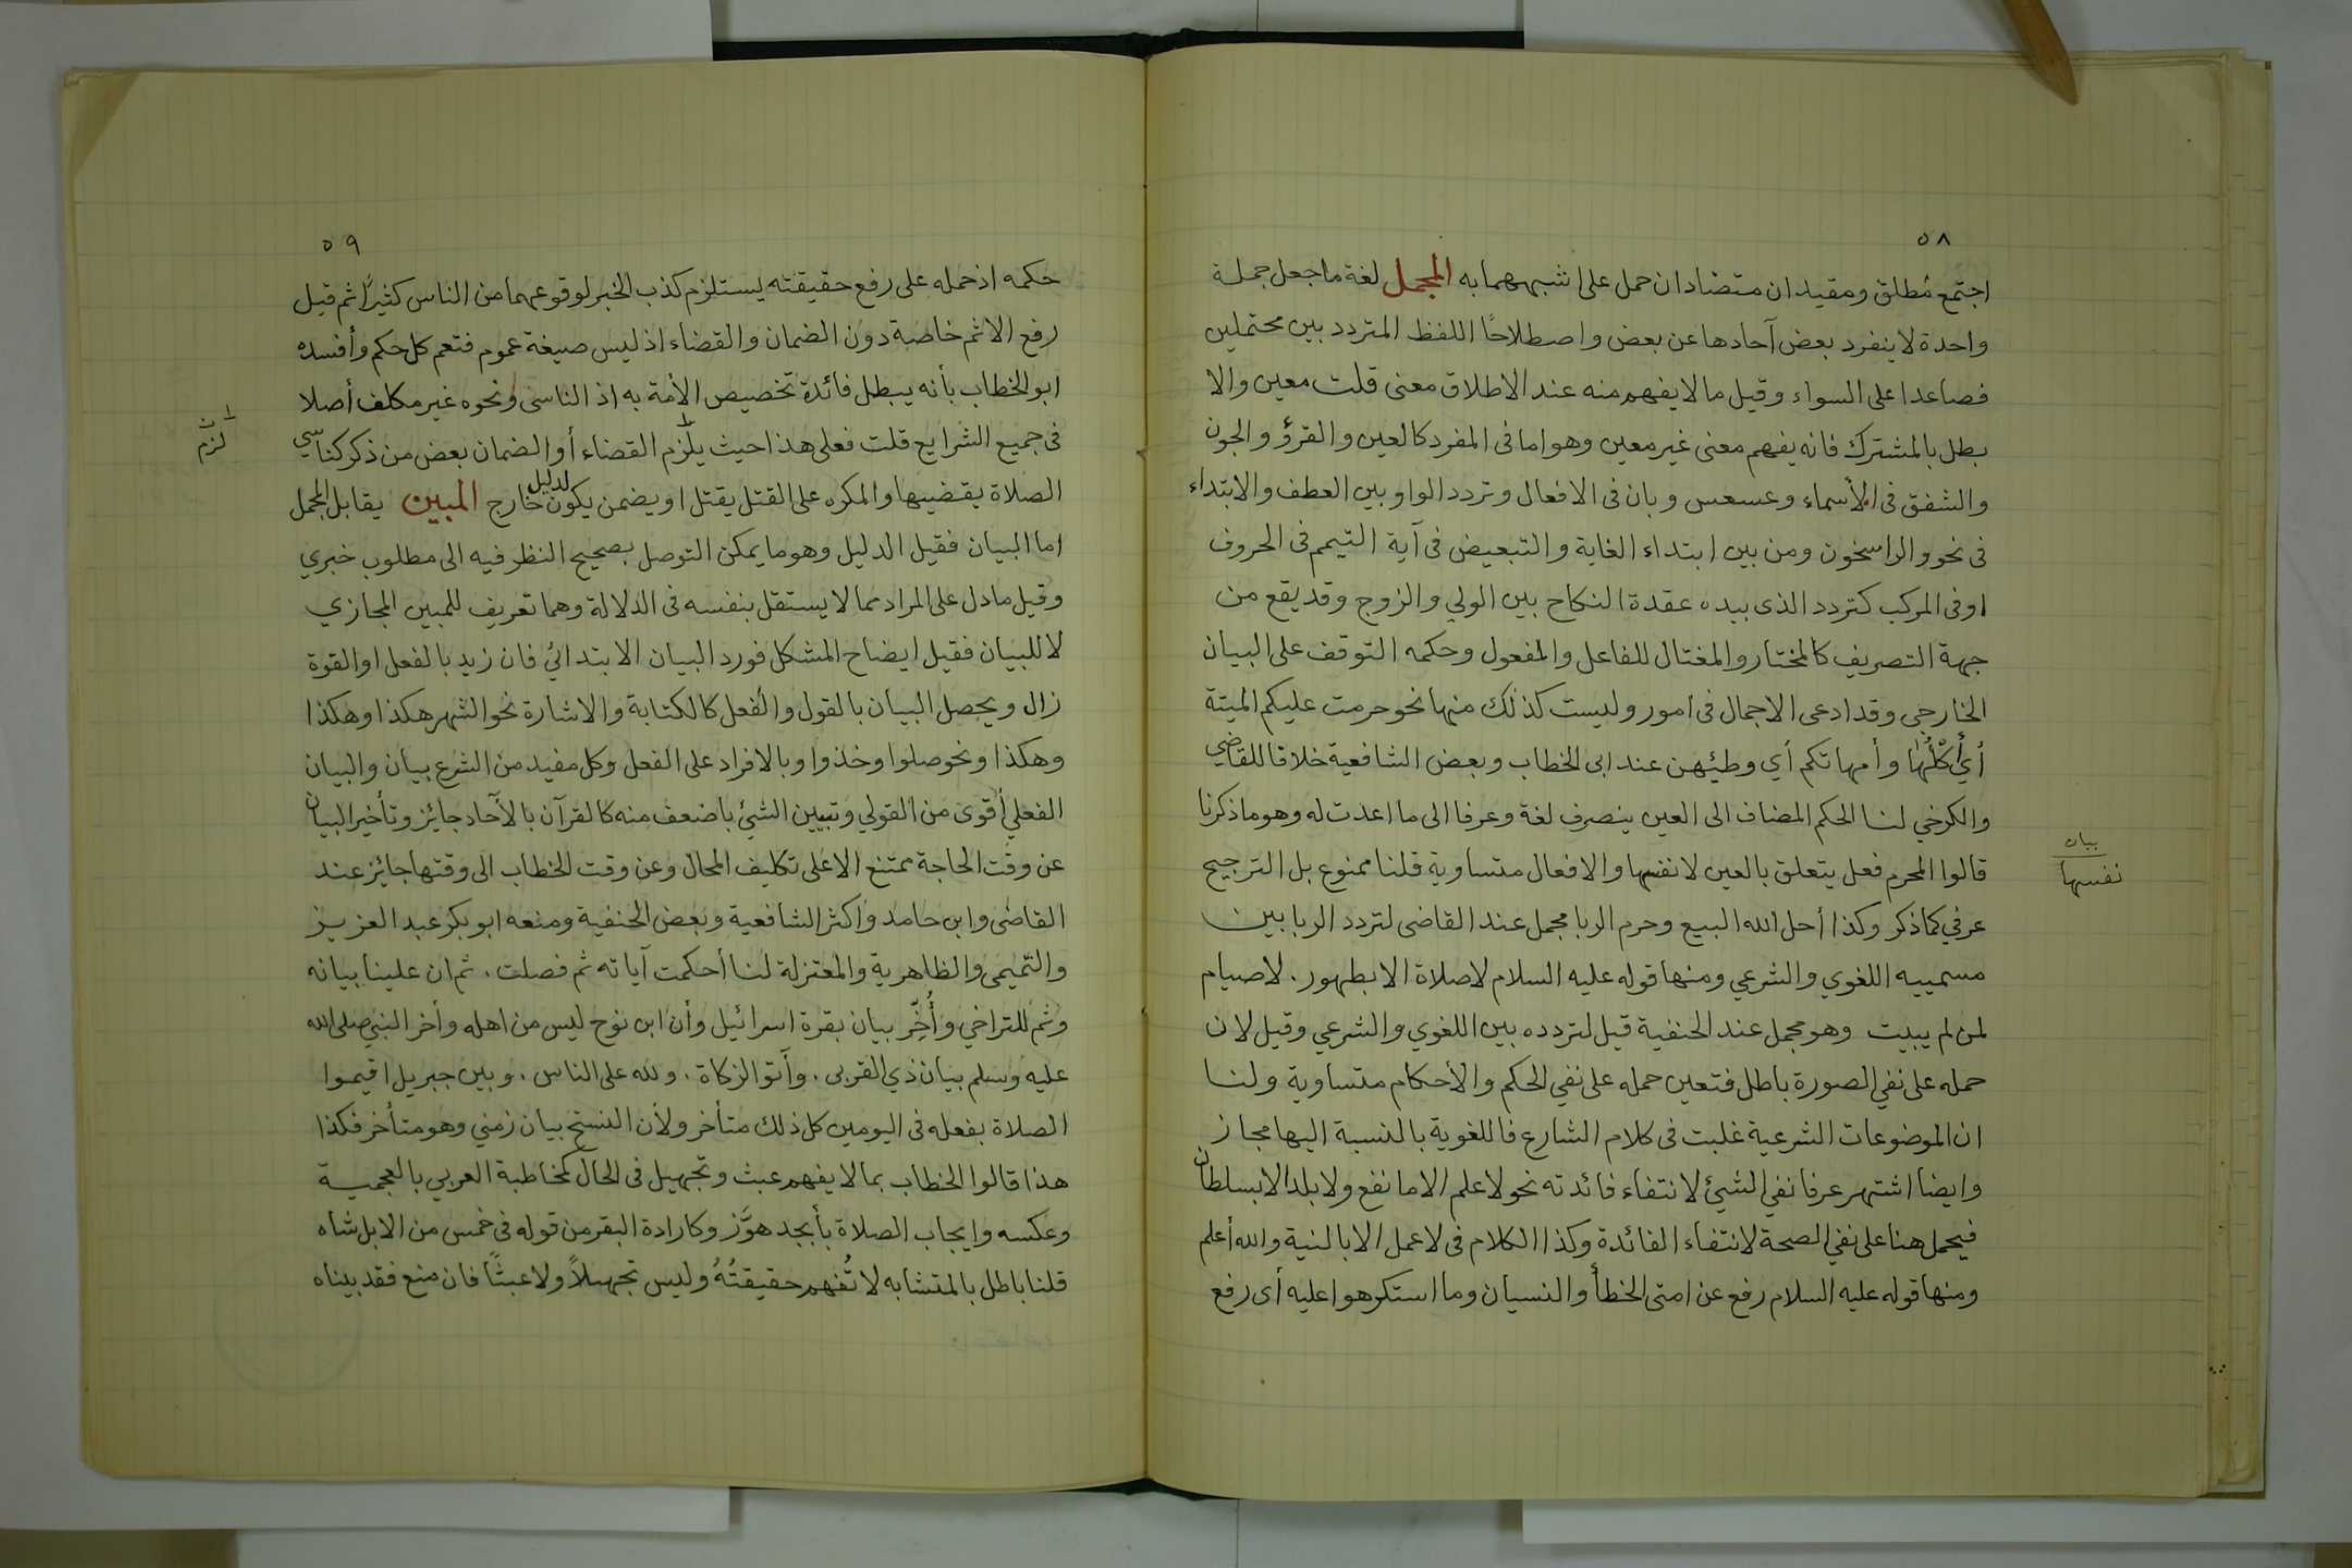 ٥٨
اجتمع مُطلق ومقيدان متضادان حمل على اشبههما به المجمل لغة ما جعل جملة
واحدة لا ينفرد بعض آحادها عن بعض واصطلاحًا اللفظ المتردد بين محتملين
فصاعدا على السواء وقيل ما لا يفهم منه عند الاطلاق معنى قلت معين والا
بطل بالمشترك فانه يفهم معنى غير معين وهو اما فى المفرد كالعين والقرؤ والجون
والشفق فى الأسماء وعسعس وبان فى الافعال وتردد الواو بين العطف والابتداء
فى نحو والراسخون ومن بين ابتداء الغاية والتبعيض فى آية التيمم فى الحروف
اوفى المركب كتردد الذى بيده عقدة النكاح بين الولي والزوج وقد يقع من
جهة التصريف كالمختار والمغتال للفاعل والمفعول وحكمه التوقف على البيان
الخارجى وقد ادعى الاجمال فى امور وليست كذلك منها نحو حرمت عليكم الميتة
أي أكْلُها وأمهاتكم أي وطئهن عند ابى الخطاب وبعض الشافعية خلافا للقاضي
والكرخي لنا الحكم المضاف الى العين ينصرف لغة وعرفا الى ما اعدت له وهو ما ذكرنا
قالوا المحرم فعل يتعلق بالعين لا نفسها والافعال متساوية قلنا ممنوع بل الترجيح
بيان
نفسها
عرفي كما ذكر وكذا أحل الله البيع وحرم الربا مجمل عند القاضى لتردد الربا بين
مسمييه اللغوي والشرعي ومنها قوله عليه السلام لا صلاة الا بطهور. لا صيام
لمن لم يبيت وهو مجمل عند الحنفية قيل لتردده بين اللغوي والشرعي وقيل لان
حمله على نفي الصورة باطل فتعين حمله على نفي الحكم والأحكام متساوية ولنا
ان الموضوعات الشرعية غلبت فى كلام الشارع فاللغوية بالنسبة اليها مجاز
وايضا اشتهر عرفا نفي الشيئ لانتفاء فائدته نحو لا علم الا ما نفع ولا بلد الا بسلطان
فيحمل هنا على نفي الصحة لانتفاء الفائدة وكذا الكلام فى لا عمل الا بالنية والله أعلم
ومنها قوله عليه السلام رفع عن امتى الخطأ والنسيان وما استكرهوا عليه أى رفع
٥٩
حكمه اذ حمله على رفع حقيقته يستلزم كذب الخبر لوقوعهما من الناس كثيرًا ثم قيل
رفع الاثم خاصة دون الضمان والقضاء اذ ليس صيغة عموم فتعم كل حكم وأفسده
ابو الخطاب بأنه يبطل فائدة تخصيص الأمة به اذ الناسى ونحوه غير مكلف أصلا
فى جميع الشرايع قلت فعلى هذا حيث يلزم القضاء أو الضمان بعض من ذكر كناسي
لزم
الصلاة يقضيها والمكره على القتل يقتل او يضمن يكون لدليل خارج المبين يقابل المجمل
اما البيان فقيل الدليل وهو ما يمكن التوصل بصحيح النظر فيه الى مطلوب خبري
وقيل ما دل على المراد مما لا يستقل بنفسه فى الدلالة وهما تعريف للمبين المجازي
لا للبيان فقيل ايضاح المشكل فورد البيان الابتدائي فان زيد بالفعل او القوة
زال ويحصل البيان بالقول والفعل كالكتابة والاشارة نحو الشهر هكذا وهكذا
وهكذا ونحو صلوا وخذوا وبالافراد على الفعل وكل مفيد من الشرع بيان والبيان
الفعلي أقوى من القولي وتبيين الشيئ باضعف منه كالقرآن بالآحاد جائز وتأخير البيان
عن وقت الحاجة ممتنع الا على تكليف المحال وعن وقت الخطاب الى وقتها جائز عند
القاضى وابن حامد واكثر الشافعية وبعض الحنفية ومنعه ابو بكر عبد العزيز
والتميمى والظاهرية والمعتزلة لنا أحكمت آياته ثم فصلت. ثم ان علينا بيانه
وثم للتراخي وأُخِّر بيان بقرة اسرائيل وأن ابن نوح ليس من اهله وأخر النبي صلى الله
عليه وسلم بيان ذي القربى. وآتوا الزكاة. ولله على الناس. وبين جبريل اقيموا
الصلاة بفعله فى اليومين كل ذلك متأخر ولأن النسخ بيان زمني وهو متأخر فكذا
هذا قالوا الخطاب بما لا يفهم عبث وتجهيل فى الحال كمخاطبة العربي بالعجمية
وعكسه وايجاب الصلاة بأبجد هوَّز وكارادة البقر من قوله فى خمس من الابل شاه
قلنا باطل بالمتشابه لا تُفهم حقيقتُهُ وليس تجهيلاً ولا عبثًا فان منع فقد بيناه